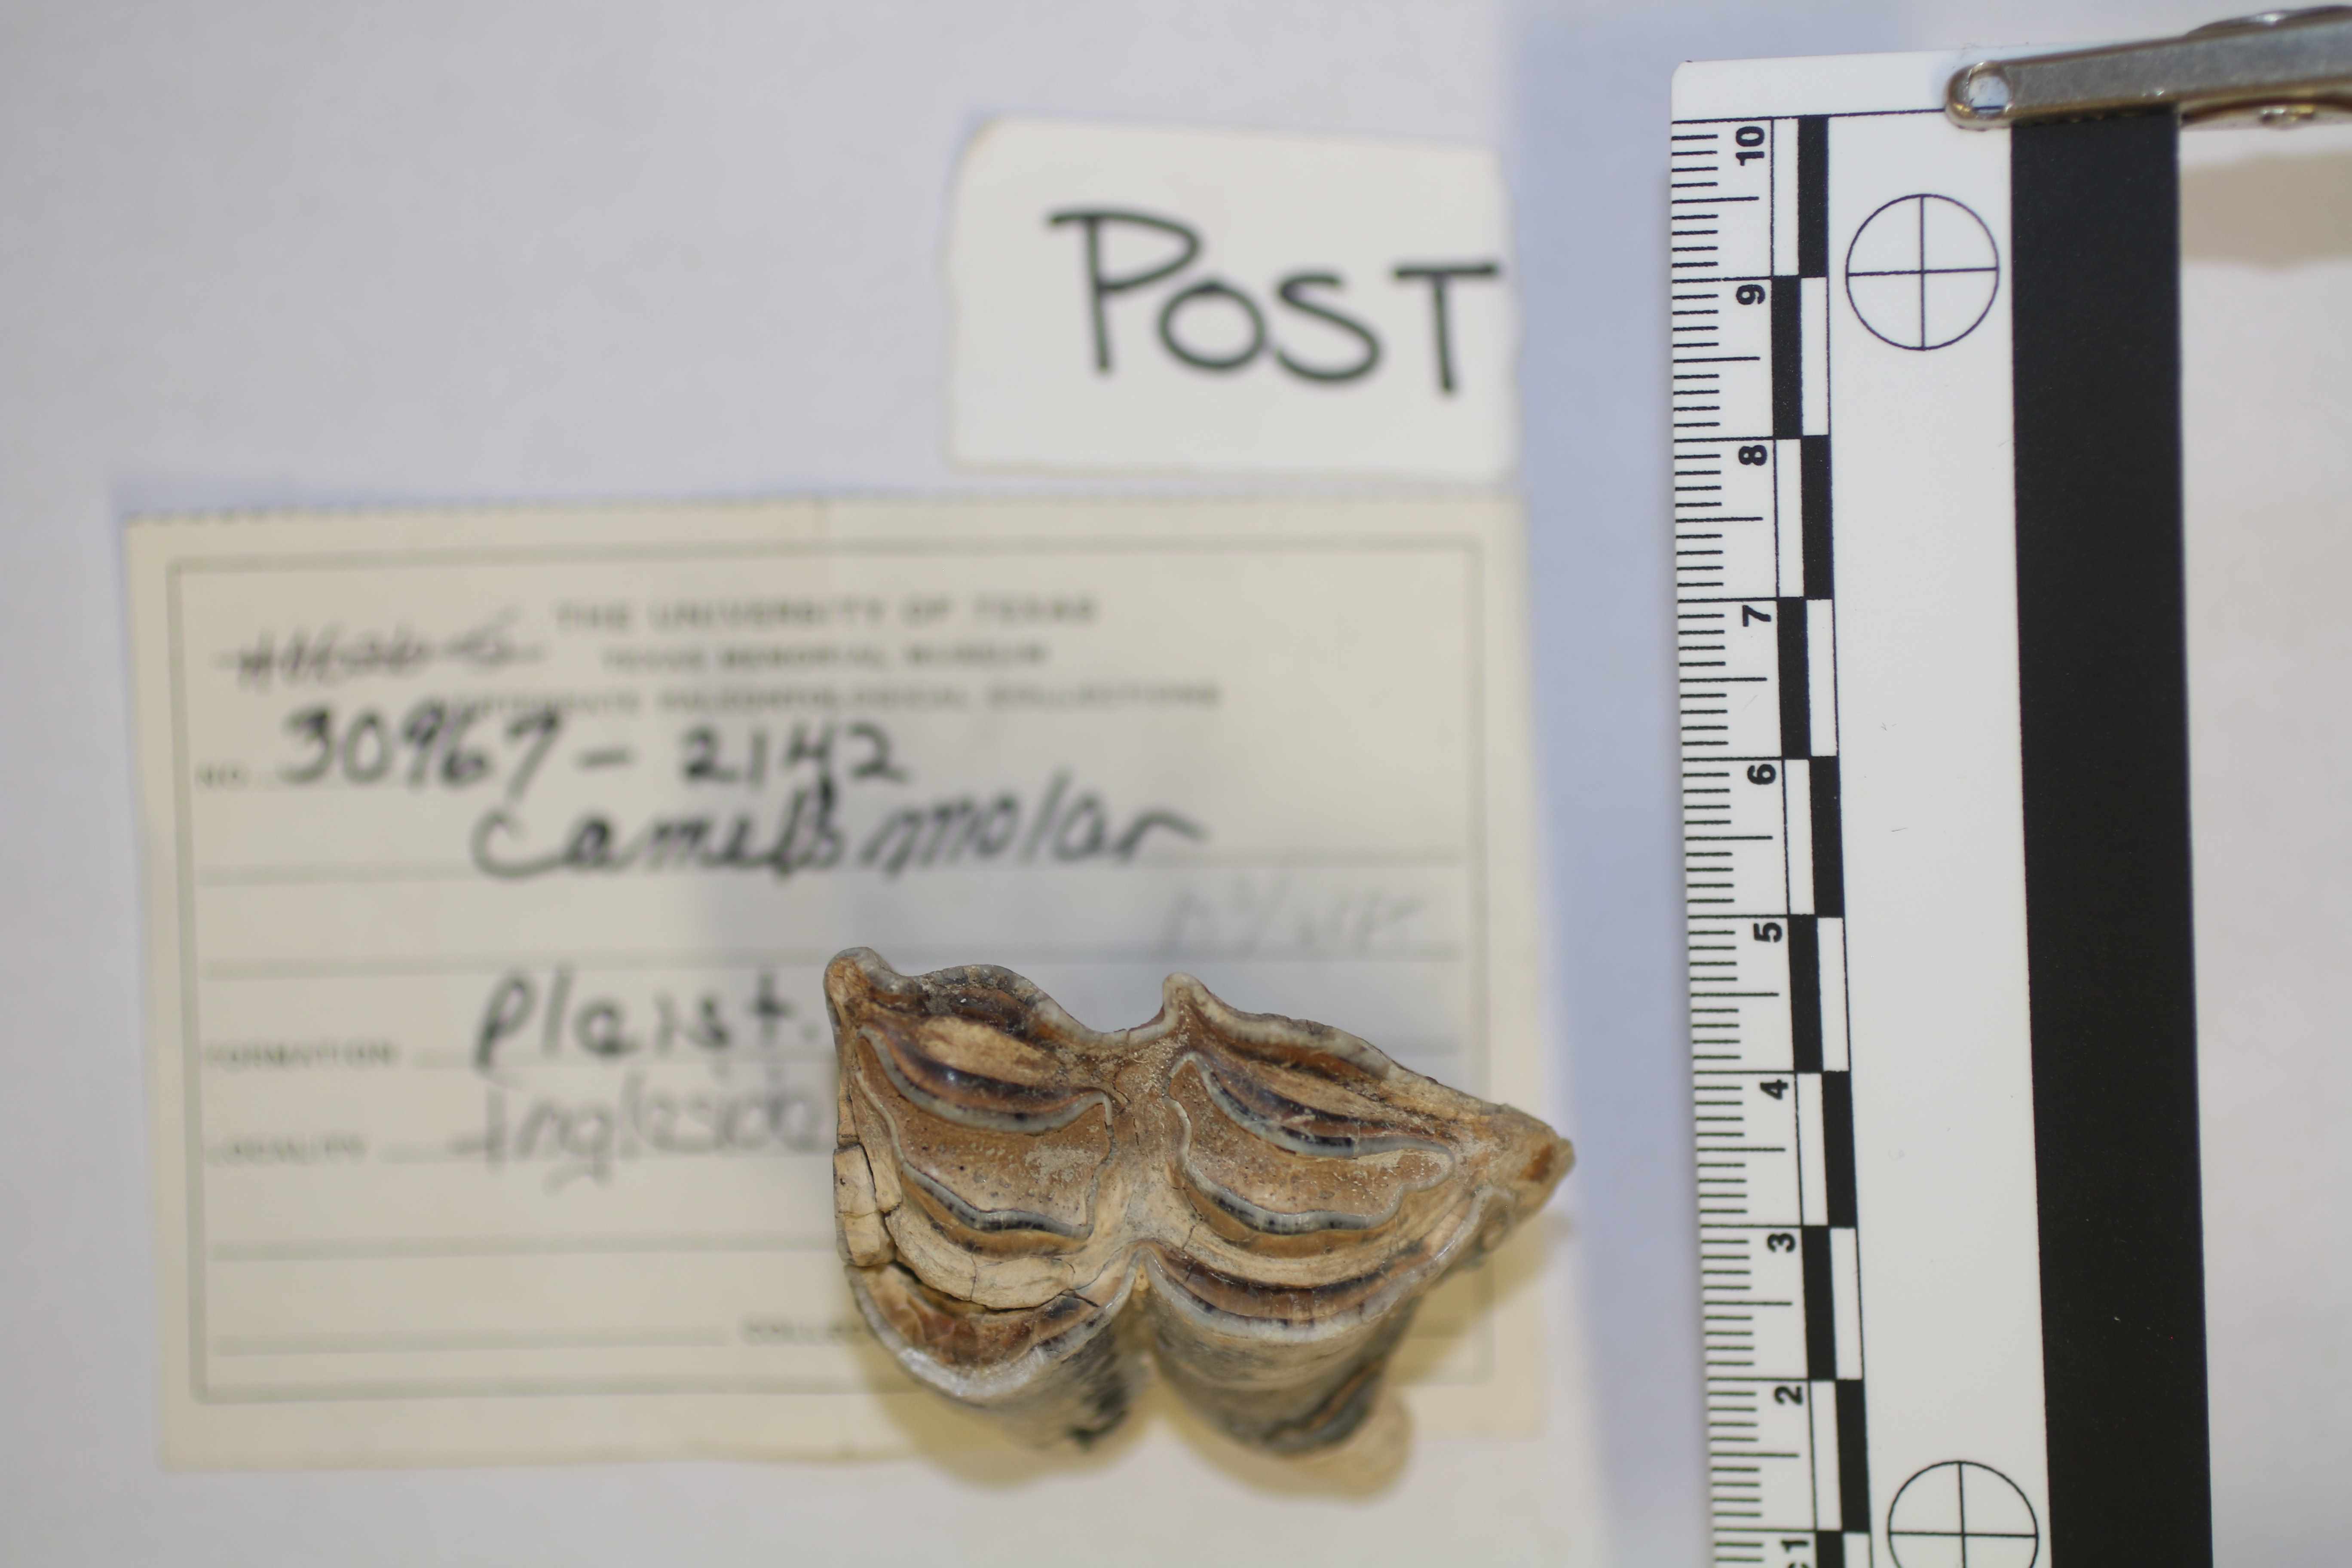 POST
THE UNIVERSITY OF TEXAS
TEXAS MEMORIAL MUSEUM
VERTEBRATE PALEONTOLOGICAL COLLECTIONS
NO. 30967-2142
molar
FORMATION Pleist.
LOCALITY Ingleside
10
9
8
7
6
5
4
3
2
1